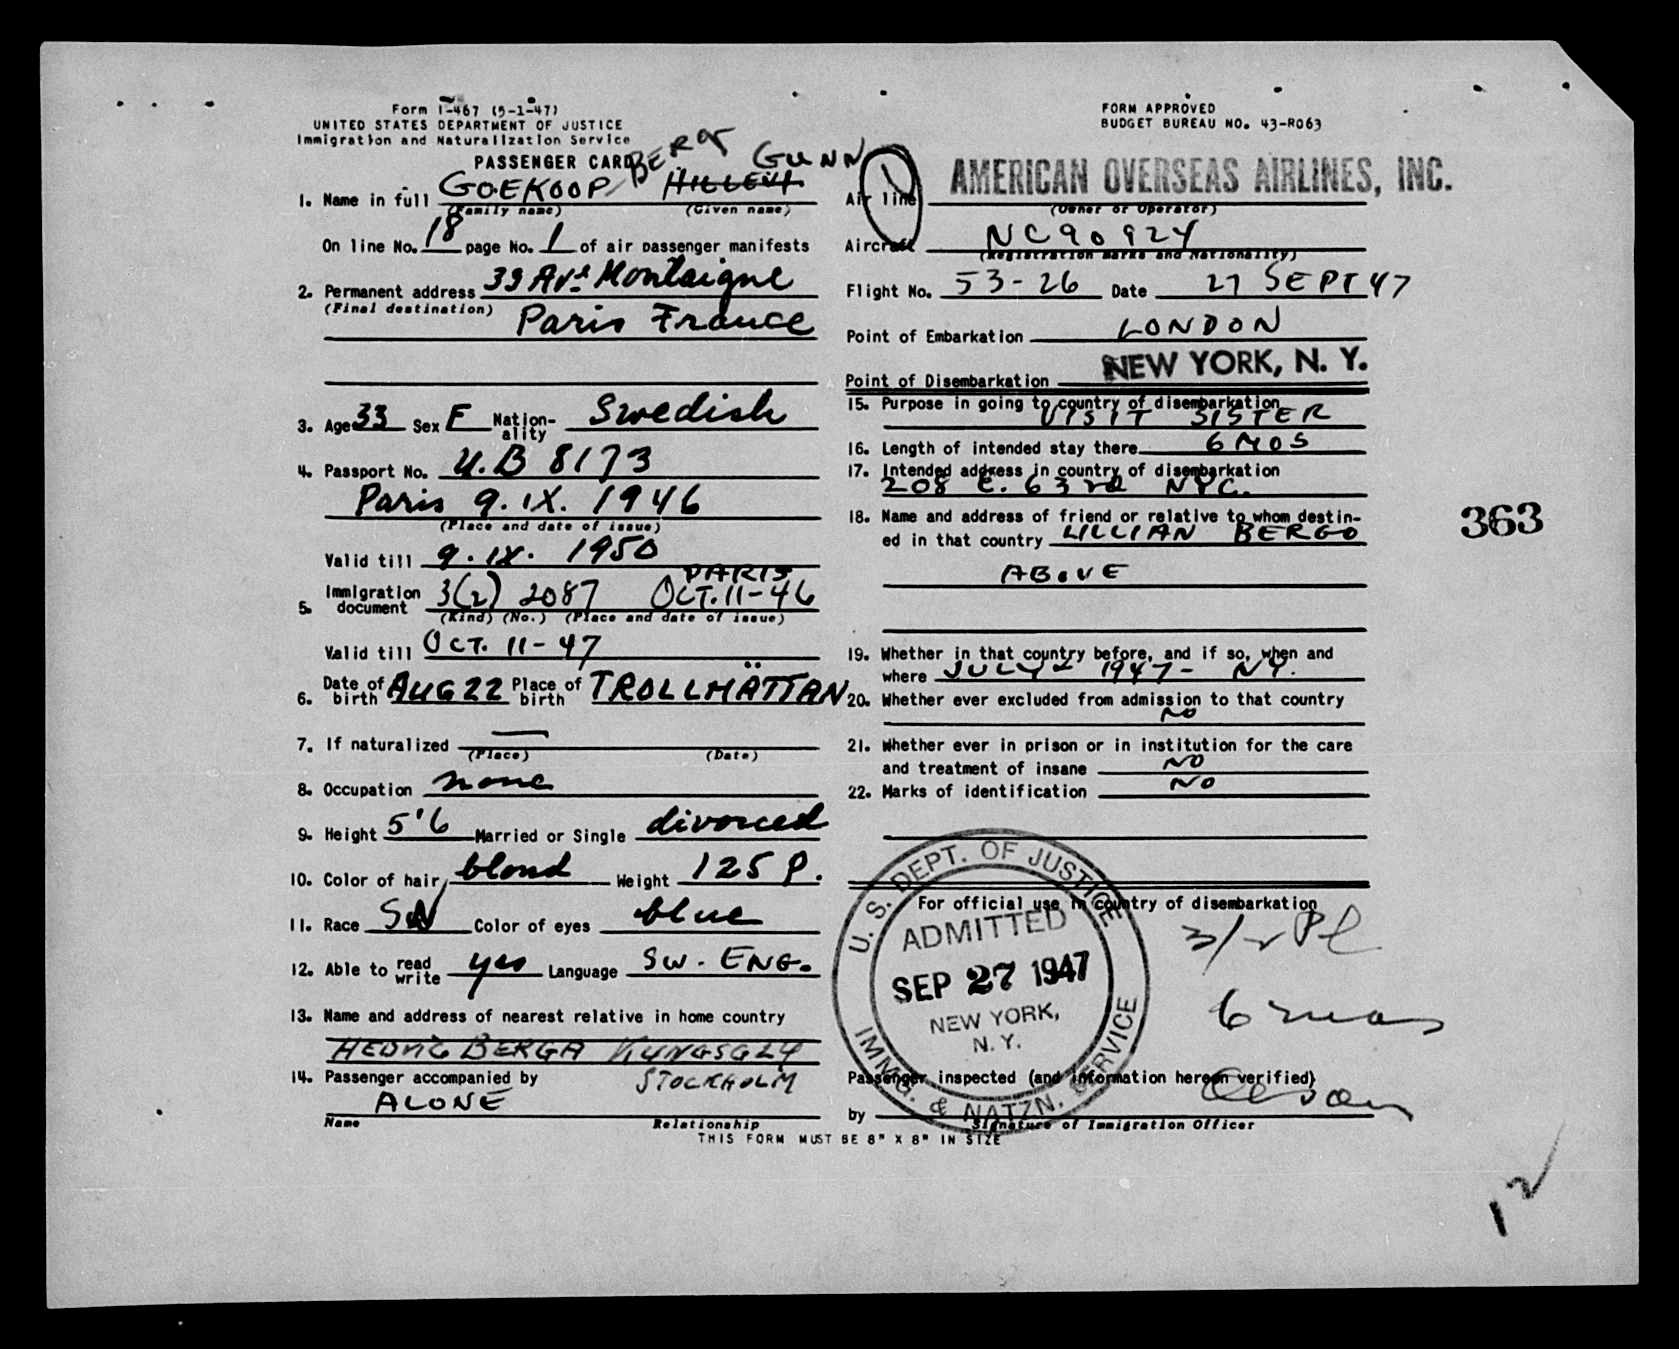 Form I-467 (5-1-47)
UNITED STATES DEPARTMENT OF JUSTICE
Immigration and Naturalization Service
PASSENGER CARD
FORM APPROVED
BUDGET BUREAU NO. 43-R063
1. Name in full GOEKOOP HILLEVI GUNN
(Family name) (Given name)
On line No. 18 page No. 1 of air passenger manifests
2. Permanent address 39 Ave Montaigne
(Final destination) Paris France
3. Age 33 Sex F Nation-ality Swedish
4. Passport No. U.B 8173
Paris 9. IX. 1946
(Place and date of issue)
Valid till 9. IX. 1950
PARIS
5. Immigration document 3(2) 2087 OCT. 11-46
(Kind) (No.) (Place and date of issue)
Valid till OCT. 11-47
6. Date of birth AUG 22 Place of birth TROLLHÄTTAN
7. If naturalized —
(Place) (Date)
8. Occupation none
9. Height 5'6 Married or Single divorced
10. Color of hair blond Weight 125 P.
11. Race Color of eyes blue
12. Able to read write yes Language SW. ENG.
13. Name and address of nearest relative in home country
HEDVIG BERGA
14. Passenger accompanied by STOCKHOLM
ALONE
Name Relationship
THIS FORM MUST BE 8" X 8" IN SIZE
Air line AMERICAN OVERSEAS AIRLINES, INC.
(Owner or Operator)
Aircraft NC90924
(Registration marks and Nationality)
Flight No. 53-26 Date 27 SEPT 47
Point of Embarkation LONDON
Point of Disembarkation NEW YORK, N. Y.
15. Purpose in going to country of disembarkation
VISIT SISTER
16. Length of intended stay there 6 MOS
17. Intended address in country of disembarkation
208 E. 63rd NYC.
18. Name and address of friend or relative to whom destin-
ed in that country LILLIAN BERGO
ABOVE
363
19. Whether in that country before, and if so, when and
where JULY 1947 - NY.
20. Whether ever excluded from admission to that country
NO
21. Whether ever in prison or in institution for the care
and treatment of insane NO
22. Marks of identification NO
For official use in country of disembarkation
U. S. DEPT. OF JUSTICE
ADMITTED
SEP 27 1947
NEW YORK,
N. Y.
IMMG. & NATZN. SERVICE
3/2
6 mos
Passenger inspected (and information hereon verified)
by
Signature of Immigration Officer
12